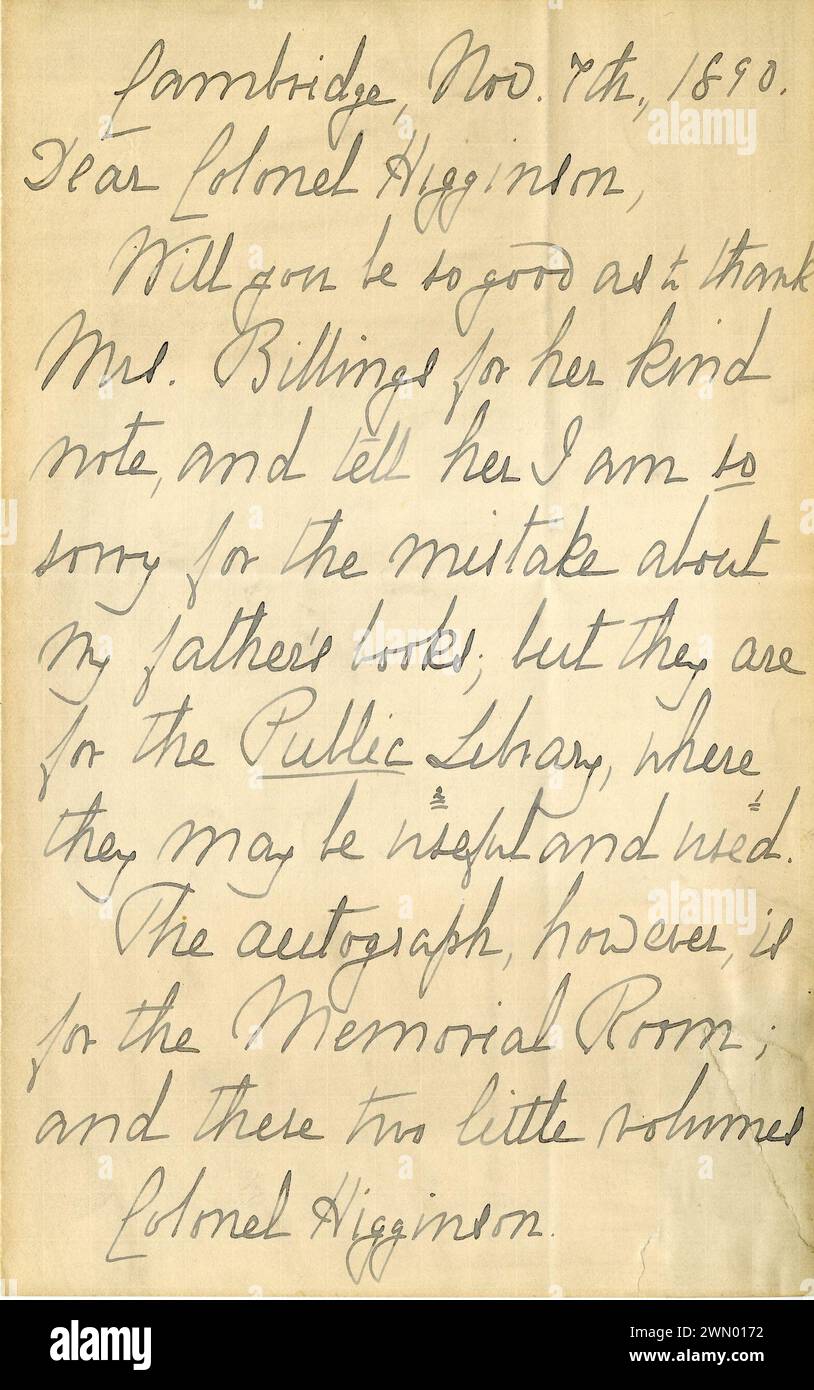 Cambridge, Nov. 7th., 1890.
Dear Colonel Higginson,
Will you be so good as to thank
Mrs. Billings for her kind
note, and tell her I am so
sorry for the mistake about
my father's books; but they are
for the Public Library, where
they may be useful and used.
The autograph, however, is
for the Memorial Room;
and these two little volumes
Colonel Higginson.
alamy
Image ID: 2WN0172
www.alamy.com